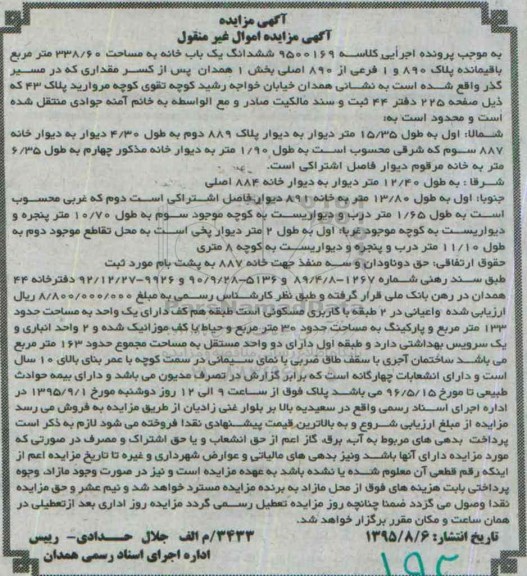 آگهی مزایده
آگهی مزایده اموال غیر منقول
به موجب پرونده اجرایی کلاسه ۹۵۰۰۱۶۹ ششدانگ یک باب خانه به مساحت ۳۳۸/۶۰ متر مربع
باقیمانده پلاک ۸۹۰ و ۱ فرعی از ۸۹۰ اصلی بخش ۱ همدان پس از کسر مقداری که در مسیر
گذر واقع شده است به نشانی همدان خیابان خواجه رشید کوچه تقوی کوچه مروارید پلاک ۴۳ که
ذیل صفحه ۲۲۵ دفتر ۴۴ ثبت و سند مالکیت صادر و مع الواسطه به خانم آمنه جوادی منتقل شده
است و محدود است به:
شمالا: اول به طول ۱۵/۳۵ متر دیوار به دیوار پلاک ۸۸۹ دوم به طول ۴/۳۰ دیوار به دیوار خانه
۸۸۷ سوم که شرقی محسوب است به طول ۱/۹۰ متر به دیوار خانه مذکور چهارم به طول ۶/۳۵
متر به خانه مرقوم دیوار فاصل اشتراکی است.
شرقا : به طول ۱۲/۴۰ متر دیوار به دیوار خانه ۸۸۴ اصلی
جنوبا: اول به طول ۱۳/۸۰ متر به خانه ۸۹۱ دیوار فاصل اشتراکی است دوم که غربی محسوب
است به طول ۱/۶۵ متر درب و دیواریست به کوچه موجود سوم به طول ۱۰/۷۰ متر پنجره و
دیواریست به کوچه موجود غربا: اول به طول ۲ متر دیوار پخی است به محل تقاطع موجود دوم به
طول ۱۱/۱۰ متر درب و پنجره و دیواریست به کوچه ۸ متری
حقوق ارتفاقی: حق دوناودان و سه منفذ جهت خانه ۸۸۷ به پشت بام مورد ثبت
طبق سند رهنی شماره ۱۲۶۷-۸۹/۴/۸ و ۵۱۳۶-۹۰/۹/۲۸ و ۹۹۲۶-۹۲/۱۲/۲۷ دفترخانه ۴۴
همدان در رهن بانک ملی قرار گرفته و طبق نظر کارشناس رسمی به مبلغ ۸/۸۰۰/۰۰۰/۰۰۰ ریال
ارزیابی شده واعیانی در ۲ طبقه با کاربری مسکونی است طبقه هم کف دارای یک واحد به مساحت حدود
۱۳۳ متر مربع و پارکینگ به مساحت حدود ۳۰ متر مربع و حیاط با کف موزائیک شده و ۲ واحد انباری و
یک سرویس بهداشتی دارد و طبقه اول دارای دو واحد مستقل به مساحت مجموع حدود ۱۶۳ متر مربع
می باشد ساختمان آجری با سقف طاق ضربی با نمای سیمانی در سمت کوچه با عمر بنای بالای ۱۰ سال
است و دارای انشعابات چهارگانه است که برابر گزارش در تصرف مدیون می باشد و دارای بیمه حوادث
طبیعی تا مورخ ۹۶/۵/۱۵ می باشد پلاک فوق از ساعت ۹ الی ۱۲ روز دوشنبه مورخ ۱۳۹۵/۹/۱ در
اداره اجرای اسناد رسمی واقع در سعیدیه بالا بر بلوار غنی زادیان از طریق مزایده به فروش می رسد
مزایده از مبلغ ارزیابی شروع و به بالاترین قیمت پیشنهادی نقدا فروخته می شود لازم به ذکر است
پرداخت بدهی های مربوط به آب، برق، گاز اعم از حق انشعاب و یا حق اشتراک و مصرف در صورتی که
مورد مزایده دارای آنها باشد ونیز بدهی های مالیاتی و عوارض شهرداری و غیره تا تاریخ مزایده اعم از
اینکه رقم قطعی آن معلوم شده یا نشده باشد به عهده مزایده است و نیز در صورت وجود مازاد، وجوه
پرداختی بابت هزینه های فوق از محل مازاد به برنده مزایده مسترد خواهد شد و نیم عشر و حق مزایده
نقدا وصول می گردد ضمنا چنانچه روز مزایده تعطیل رسمی گردد مزایده روز اداری بعد ازتعطیلی در
همان ساعت و مکان مقرر برگزار خواهد شد.
تاریخ انتشار: ۱۳۹۵/۸/۶
۳۴۳۳/م الف جلال حدادی- رییس
اداره اجرای اسناد رسمی همدان
۱۹۲